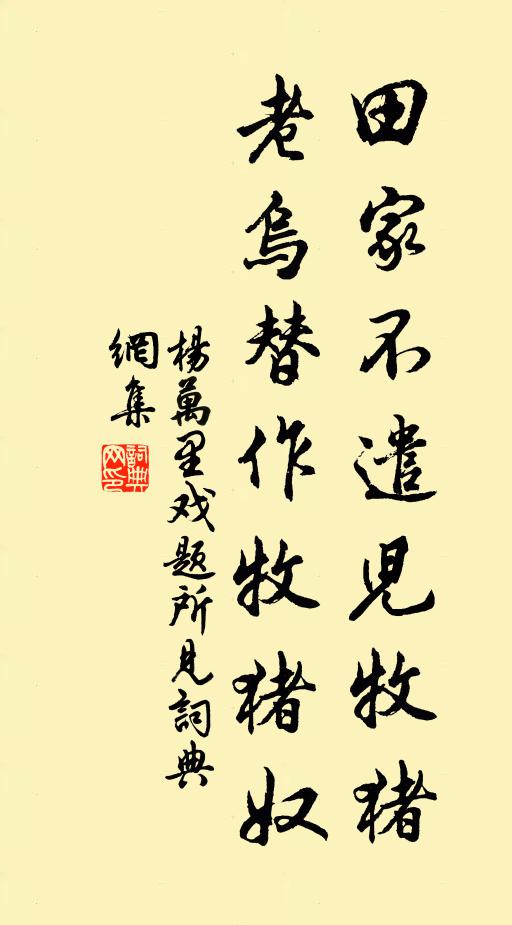 田家不遣児牧猪
老烏替作牧猪奴
楊萬里戏题所見詞典
網集
詞典
网印